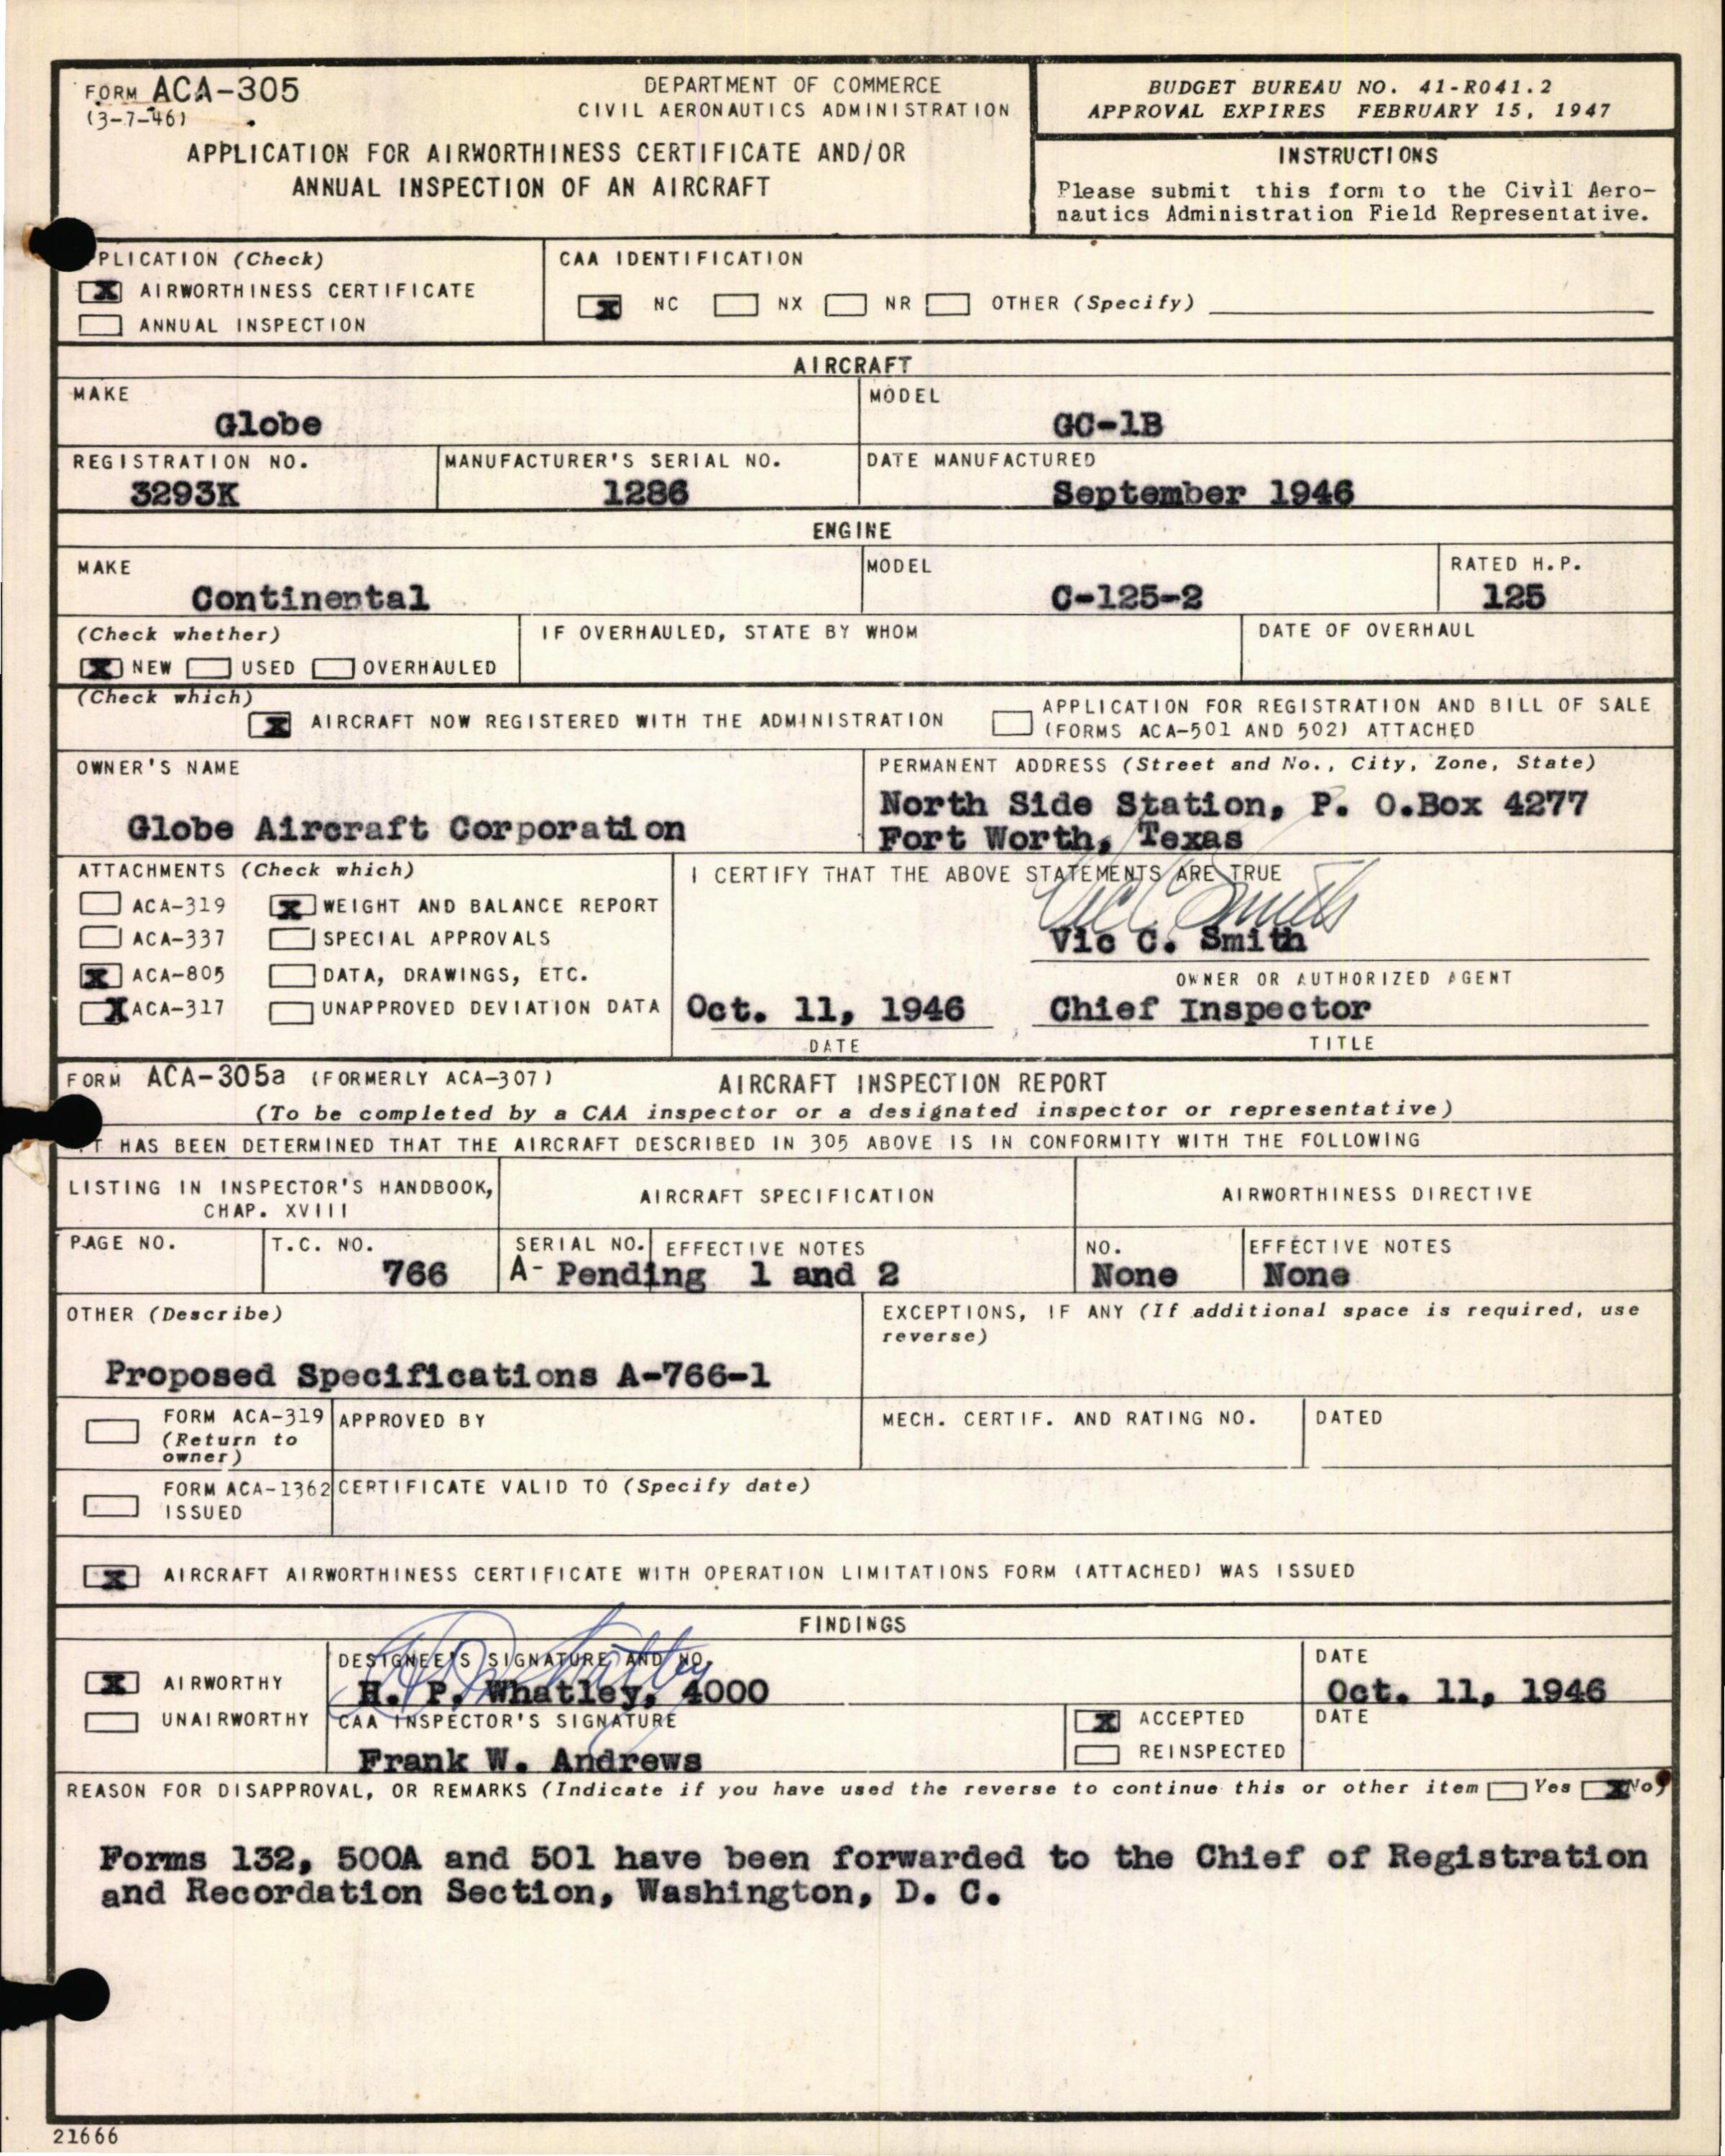 FORM ACA-305
(3-7-46)
DEPARTMENT OF COMMERCE
CIVIL AERONAUTICS ADMINISTRATION
APPLICATION FOR AIRWORTHINESS CERTIFICATE AND/OR
ANNUAL INSPECTION OF AN AIRCRAFT
BUDGET BUREAU NO. 41-R041.2
APPROVAL EXPIRES FEBRUARY 15, 1947
INSTRUCTIONS
Please submit this form to the Civil Aero-
nautics Administration Field Representative.
PLICATION (Check)
X AIRWORTHINESS CERTIFICATE
ANNUAL INSPECTION
CAA IDENTIFICATION
X NC NX NR OTHER (Specify)
AIRCRAFT
MAKE
Globe
MODEL
GC-1B
REGISTRATION NO.
3293K
MANUFACTURER'S SERIAL NO.
1286
DATE MANUFACTURED
September 1946
ENGINE
MAKE
Continental
MODEL
C-125-2
RATED H.P.
125
(Check whether)
X NEW USED OVERHAULED
IF OVERHAULED, STATE BY WHOM
DATE OF OVERHAUL
(Check which)
X AIRCRAFT NOW REGISTERED WITH THE ADMINISTRATION
APPLICATION FOR REGISTRATION AND BILL OF SALE
(FORMS ACA-501 AND 502) ATTACHED
OWNER'S NAME
Globe Aircraft Corporation
PERMANENT ADDRESS (Street and No., City, Zone, State)
North Side Station, P. O.Box 4277
Fort Worth, Texas
ATTACHMENTS (Check which)
ACA-319 X WEIGHT AND BALANCE REPORT
ACA-337 SPECIAL APPROVALS
X ACA-805 DATA, DRAWINGS, ETC.
X ACA-317 UNAPPROVED DEVIATION DATA
I CERTIFY THAT THE ABOVE STATEMENTS ARE TRUE
Vic C Smith
Vic C. Smith
OWNER OR AUTHORIZED AGENT
Oct. 11, 1946 Chief Inspector
DATE TITLE
FORM ACA-305a (FORMERLY ACA-307)
AIRCRAFT INSPECTION REPORT
(To be completed by a CAA inspector or a designated inspector or representative)
IT HAS BEEN DETERMINED THAT THE AIRCRAFT DESCRIBED IN 305 ABOVE IS IN CONFORMITY WITH THE FOLLOWING
LISTING IN INSPECTOR'S HANDBOOK,
CHAP. XVIII
AIRCRAFT SPECIFICATION
AIRWORTHINESS DIRECTIVE
PAGE NO.
T.C. NO.
766
SERIAL NO. EFFECTIVE NOTES
A- Pending 1 and 2
NO.
None
EFFECTIVE NOTES
None
OTHER (Describe)
Proposed Specifications A-766-1
EXCEPTIONS, IF ANY (If additional space is required, use
reverse)
FORM ACA-319
(Return to
owner)
APPROVED BY
MECH. CERTIF. AND RATING NO.
DATED
FORM ACA-1362
ISSUED
CERTIFICATE VALID TO (Specify date)
X AIRCRAFT AIRWORTHINESS CERTIFICATE WITH OPERATION LIMITATIONS FORM (ATTACHED) WAS ISSUED
FINDINGS
X AIRWORTHY
UNAIRWORTHY
DESIGNEE'S SIGNATURE AND NO.
H. P. Whatley, 4000
DATE
Oct. 11, 1946
CAA INSPECTOR'S SIGNATURE
Frank W. Andrews
X ACCEPTED
REINSPECTED
DATE
REASON FOR DISAPPROVAL, OR REMARKS (Indicate if you have used the reverse to continue this or other item Yes X No)
Forms 132, 500A and 501 have been forwarded to the Chief of Registration
and Recordation Section, Washington, D. C.
21666